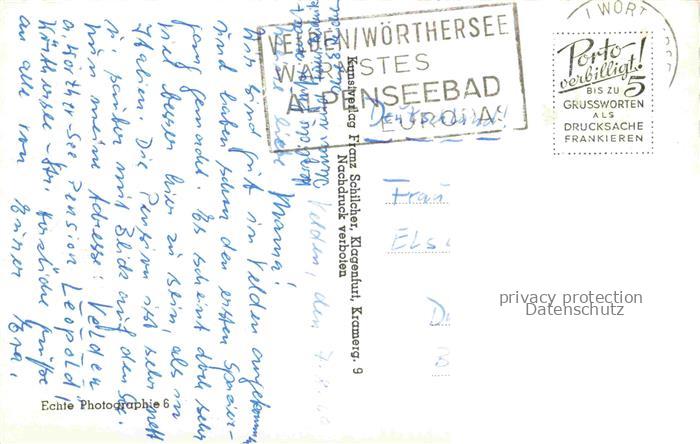 VELDEN/WÖRTHERSEE
WÄRMSTES
ALPENSEEBAD
EUROPAS
WÖRT
Porto-
verbilligt!
BIS ZU 5
GRUSSWORTEN
ALS
DRUCKSACHE
FRANKIEREN
Deutschland!
Frau
Els
privacy protection
Datenschutz
Kunstverlag Franz Schilcher, Klagenfurt, Kramerg. 9
Nachdruck verboten
Velden, den 7.
Mama!
Wir sind gut in Velden angekommen
und haben schon den ersten Spazier-
gang gemacht. Es scheint doch sehr
viel besser hier zu sein, als in
Italien. Die Pension ist sehr nett
u. sauber mit Blick auf den See.
Nun meine Adresse: Velden
a. Wörther-See Pension Leopold!
Wörthersee-Str. Herzliche Grüße
an alle von Eurer
Echte Photographie 6